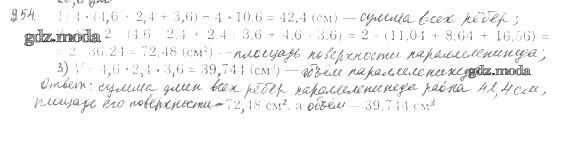 954. 1) 4 · (4,6 + 2,4 + 3,6) = 4 · 10,6 = 42,4 (см) — сумма всех рёбер;
gdz.moda
2 · (4,6 · 2,4 + 2,4 · 3,6 + 4,6 · 3,6) = 2 · (11,04 + 8,64 + 16,56) =
= 2 · 36,24 = 72,48 (см²) — площадь поверхности параллелепипеда;
3) V = 4,6 · 2,4 · 3,6 = 39,744 (см³) — объём параллелепипеда
gdz.moda
Ответ: сумма длин всех рёбер параллелепипеда равна 42,4 см,
площадь его поверхности — 72,48 см², а объём — 39,744 см³